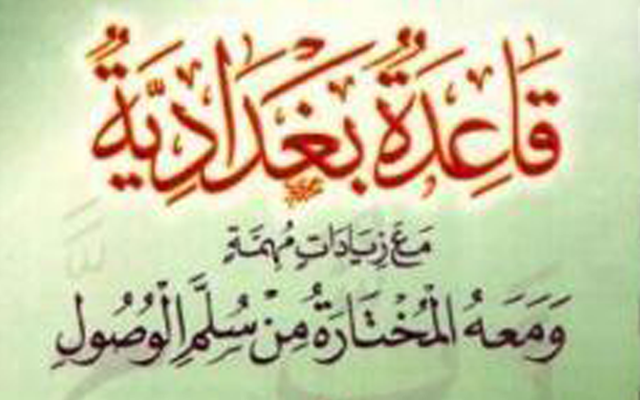 قَاعِدَةٌ بَغْدَادِيَّةٌ
مَعَ زِيَادَاتٍ مُهِمَّةٍ
وَمَعَهُ الْمُخْتَارَةُ مِنْ سُلَّمِ الْوُصُولِ